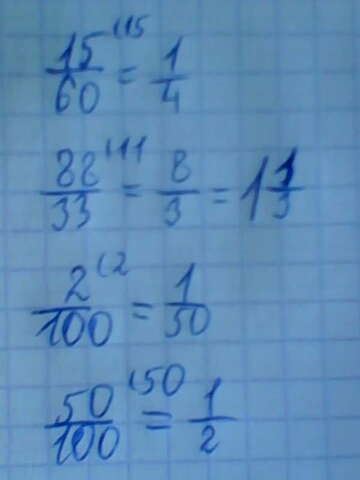 15/60 (15 = 1/4
88/33 (11 = 8/3 = 1 1/3
2/100 (2 = 1/50
50/100 (50 = 1/2